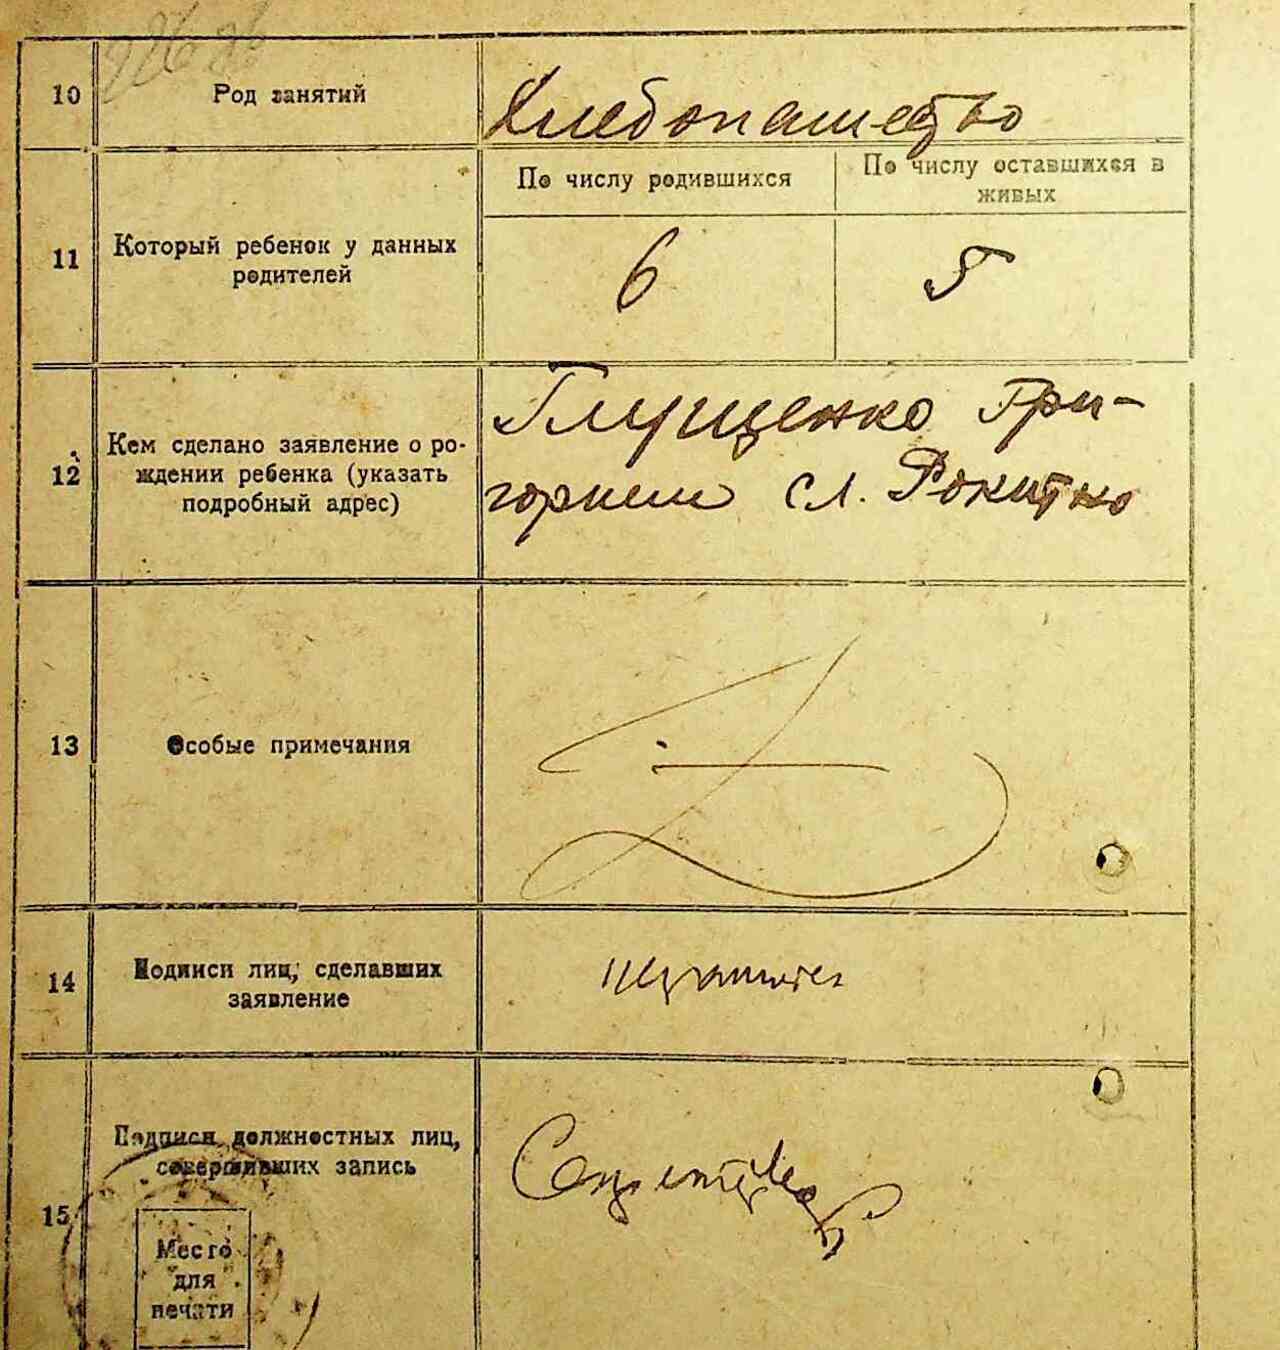 10
Род занятий
Хлебопашество
11
Который ребенок у данных
родителей
По числу родившихся
По числу оставшихся в
живых
6
5
12
Кем сделано заявление о ро-
ждении ребенка (указать
подробный адрес)
Глущенко Гри-
горием сл. Рокитно
13
Особые примечания
14
Подписи лиц, сделавших
заявление
15
Подписи должностных лиц,
совершивших запись
Место
для
печати